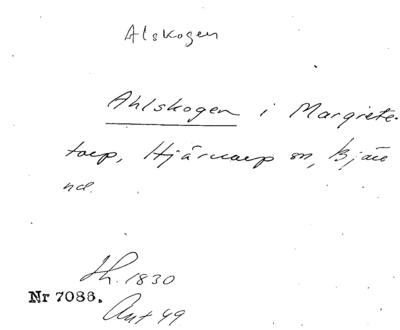 Alskogen
Ahlskogen i Margrete-
torp, Hjärnarp sn, Bjäre
hd.
Lh. 1830
Nr 7088.
Ant 49